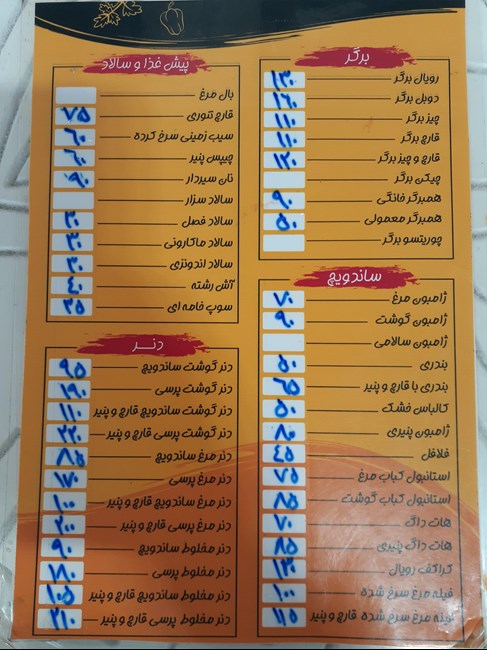 برگر
رویال برگر ۱۳۰
دوبل برگر ۱۶۰
چیز برگر ۱۱۰
قارچ برگر ۱۱۰
قارچ و چیز برگر ۱۲۰
چیکن برگر
همبرگر خانگی ۹۰
همبرگر معمولی ۵۰
چوریتسو برگر
ساندویچ
ژامبون مرغ ۷۰
ژامبون گوشت ۹۰
ژامبون سالامی
بندری ۵۰
بندری با قارچ و پنیر ۶۵
کالباس خشک ۵۰
ژامبون پنیری ۸۰
فلافل ۴۵
استانبول کباب مرغ ۷۵
استانبول کباب گوشت ۸۵
هات داگ ۷۰
هات داگ پنیری ۸۵
کراکف رویال ۱۳۰
فیله مرغ سرخ شده ۱۰۰
فیله مرغ سرخ شده قارچ و پنیر ۱۱۵
پیش غذا و سالاد
بال مرغ
قارچ تنوری ۷۵
سیب زمینی سرخ کرده ۶۰
چیپس پنیر ۶۰
نان سیردار ۹۰
سالاد سزار
سالاد فصل ۳۰
سالاد ماکارونی ۳۰
سالاد اندونزی ۳۰
آش رشته ۴۰
سوپ خامه ای ۳۵
دنر
دنر گوشت ساندویچ ۹۵
دنر گوشت پرسی ۱۹۰
دنر گوشت ساندویچ قارچ و پنیر ۱۱۰
دنر گوشت پرسی قارچ و پنیر ۲۲۰
دنر مرغ ساندویچ ۸۵
دنر مرغ پرسی ۱۷۰
دنر مرغ ساندویچ قارچ و پنیر ۱۰۰
دنر مرغ پرسی قارچ و پنیر ۲۰۰
دنر مخلوط ساندویچ ۹۰
دنر مخلوط پرسی ۱۸۰
دنر مخلوط ساندویچ قارچ و پنیر ۱۰۵
دنر مخلوط پرسی قارچ و پنیر ۲۱۰